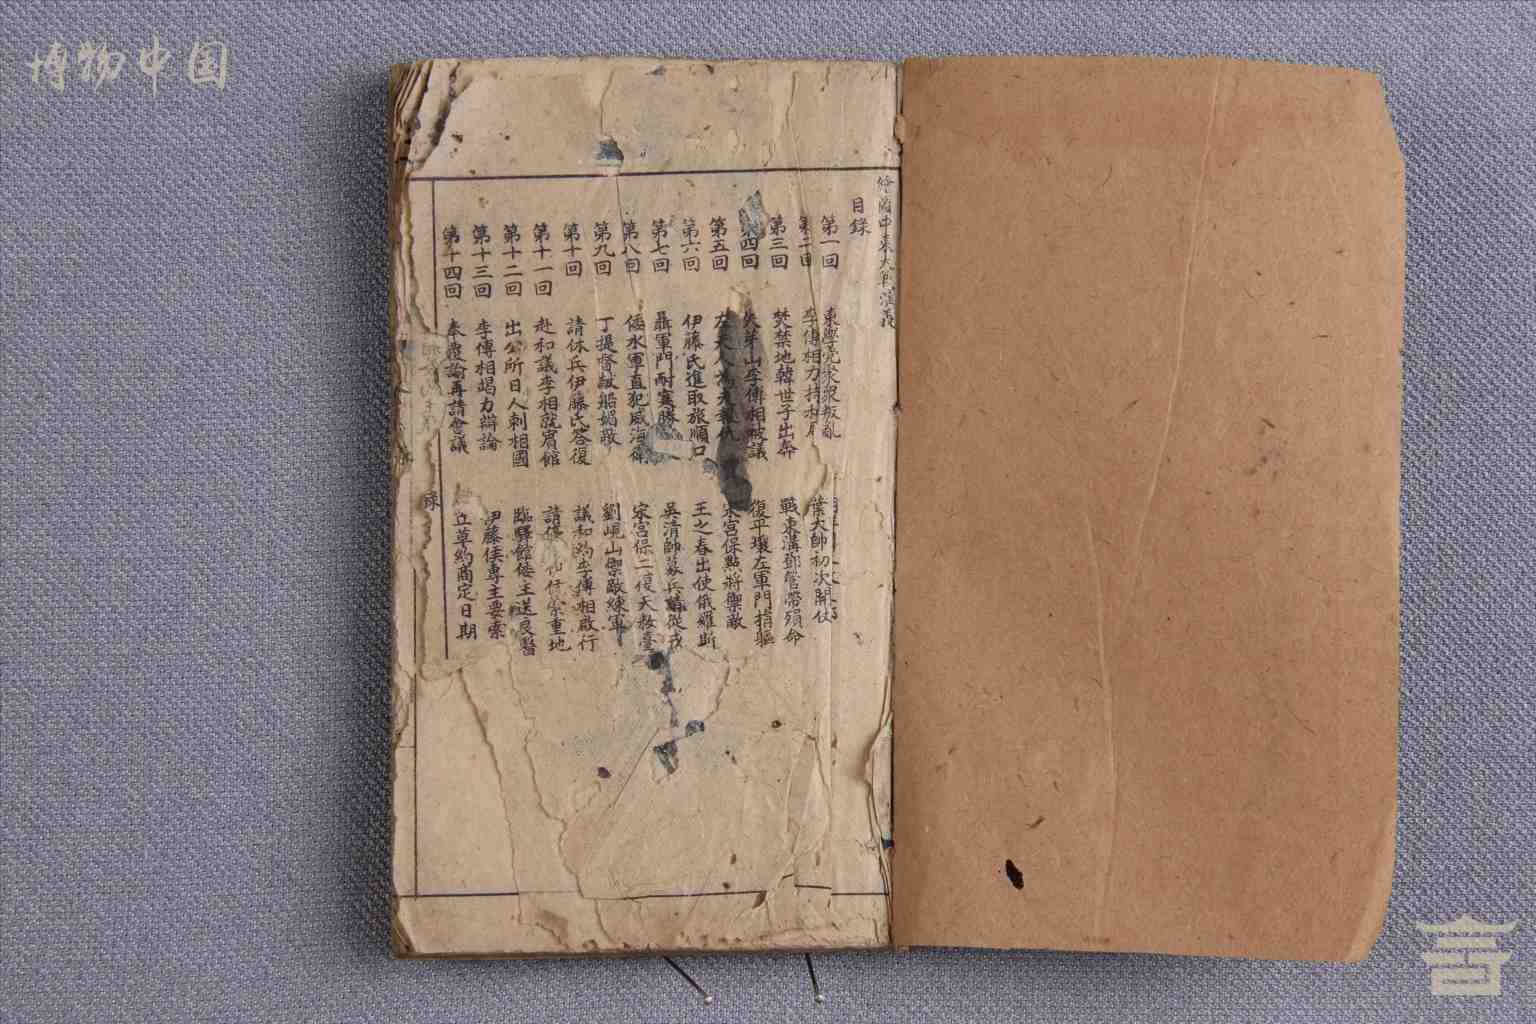 博物中国
繪圖中東大戰演義
目錄
第一回 東學黨聚眾叛亂
第二回 李傅相力持和局 葉大帥初次開仗
第三回 焚禁地韓世子出奔 戰東溝鄧管帶殞命
第四回 失牙山李傅相被議 復平壤左軍門捐軀
第五回 左夫人為夫報仇 宋宮保點將禦敵
第六回 伊藤氏進取旅順口 王之春出使俄羅斯
第七回 聶軍門耐寒勝 吳清帥募兵請從戎
第八回 倭水軍直犯威海衛 宋宮保二復大救臺
第九回 丁提督獻船媚敵 劉峴山禦敵練軍
第十回 請休兵伊藤氏答復 議和約李傅相啟行
第十一回 赴和議李相就賓館 請停 重地
第十二回 出公所日人刺相國 臨驛館倭主送良醫
第十三回 李傅相竭力辯論 伊藤侯專主要索
第十四回 奉覆諭再請會議 立草約商定日期